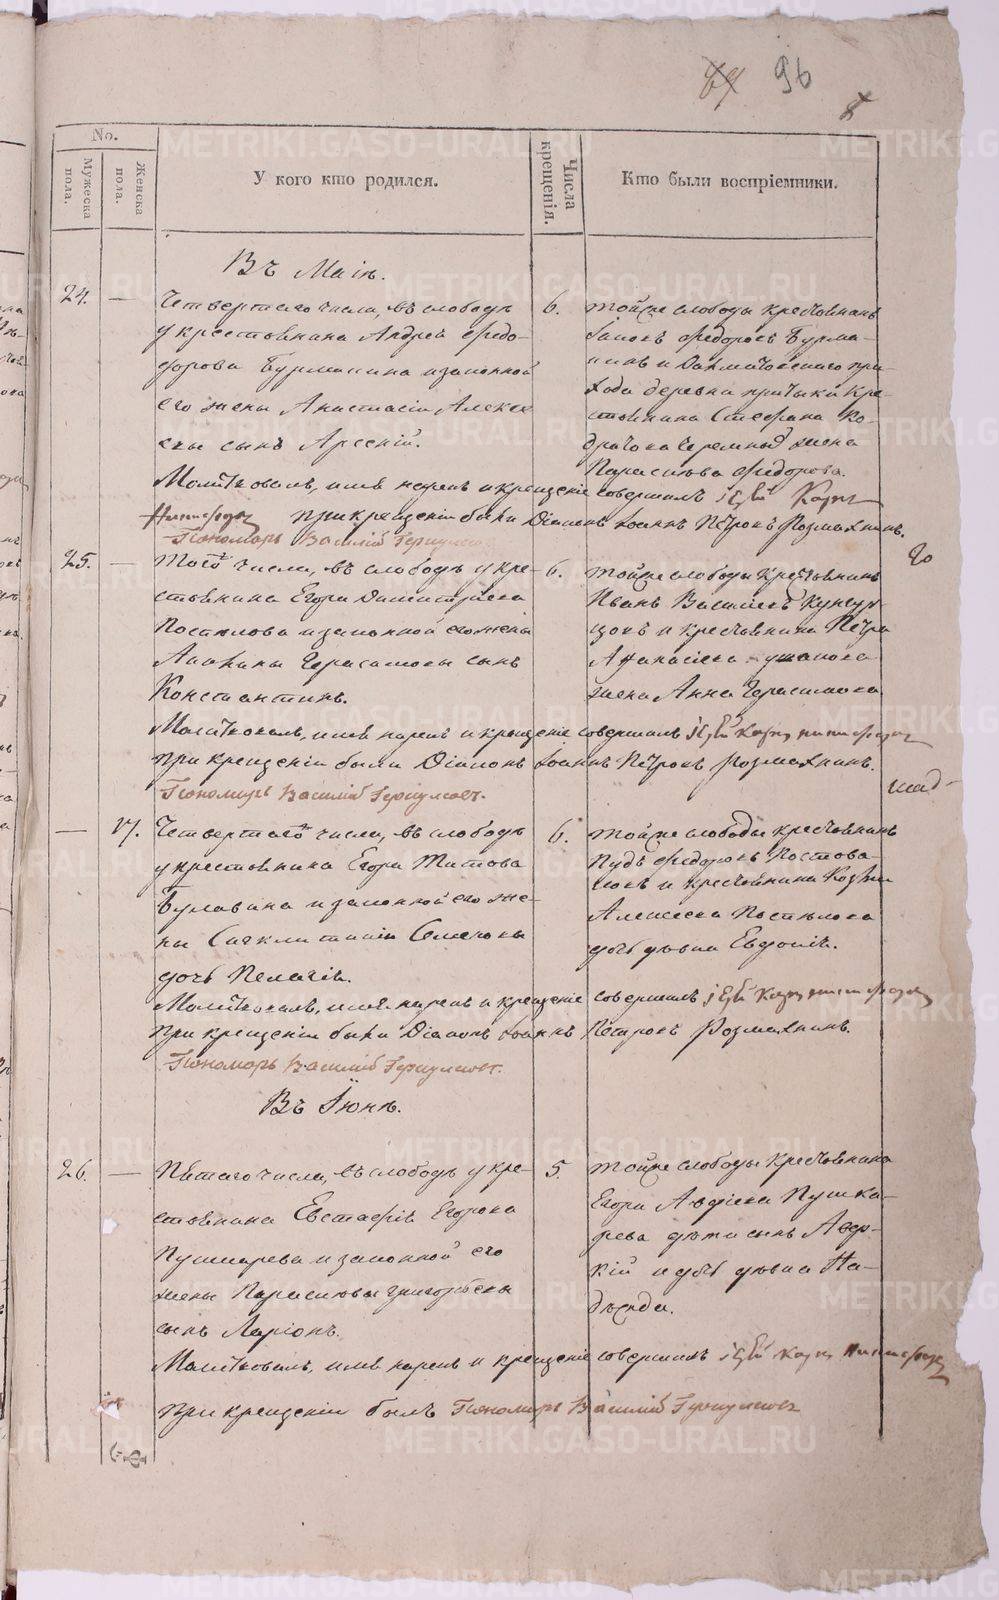 96
No.
Мужеска пола.
Женска пола.
У кого кто родился.
Числа крещенія.
Кто были воспріемники.
Въ Маіѣ.
24. — Четвертаго числа, въ слободѣ
у крестьянина Андрея Ѳедо-
дорова Бурмакина и законной
его жены Анастасіи Алексѣ-
евы сынъ Арсеній.
6. тойже слободы крестьянинъ
Ѳедоровъ Бурма-
кинъ и Далматовскаго при-
хода деревни крe-
стьянина Стефана Ко-
дратова жена
Параскова Ѳедорова.
Молитвовалъ, имя нарекъ и крещеніе совершалъ іерей Карпъ
при крещеніи были Діаконъ Іоаннъ Петровъ Размахнинъ.
Пономарь Василій
25. — Того числа, въ слободѣ у кре-
стьянина Егора Димитріева
Постылова и законной его жены
Герасимовы сынъ
Константинъ.
6. тойже слободы крестьянинъ
Иванъ Васильевъ Кунгур-
цовъ и крестьянина Петра
Аѳанасіева Ушакова
жена Анна Герасимова
Молитвовалъ, имя нарекъ и крещеніе совершалъ іерей Карпъ
при крещеніи были Діаконъ Іоаннъ Петровъ Розмахнинъ.
Пономарь Василій
— 17. Четвертаго числа, въ слободѣ
у крестьянина Егора Титова
Булавина и законной его же-
ны Синклитикіи Семеновы
дочь Пелагія.
6. тойже слободы крестьянинъ
Ѳедоровъ
и крестьянина Козмы
Алексѣева Постылова
дочь дѣвка Евдокія.
Молитвовалъ, имя нарекъ и крещеніе совершалъ іерей Карпъ
при крещеніи были Діаконъ Іоаннъ Петровъ Розмахнинъ.
Пономарь Василій
Въ Іюнѣ.
26. — Пятаго числа, въ слободѣ у кре-
стьянина Евстафія Егорова
Пушкарева и законной его
жены Парасковьи Григорьевы
сынъ Ларіонъ.
5. тойже слободы крестьянина
Егора Авдіева Пушка-
рева дѣти сынъ
и дочь дѣвка На-
дежда.
Молитвовалъ, имя нарекъ и крещеніе совершалъ іерей Карпъ
при крещеніи былъ Пономарь Василій
METRIKI.GASO-URAL.RU